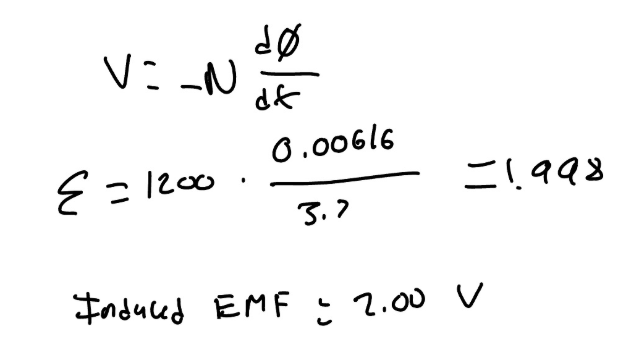 V = -N dØ/dt
ε = 1200 · 0.00616/3.7 = 1.998
Induced EMF = 2.00 V